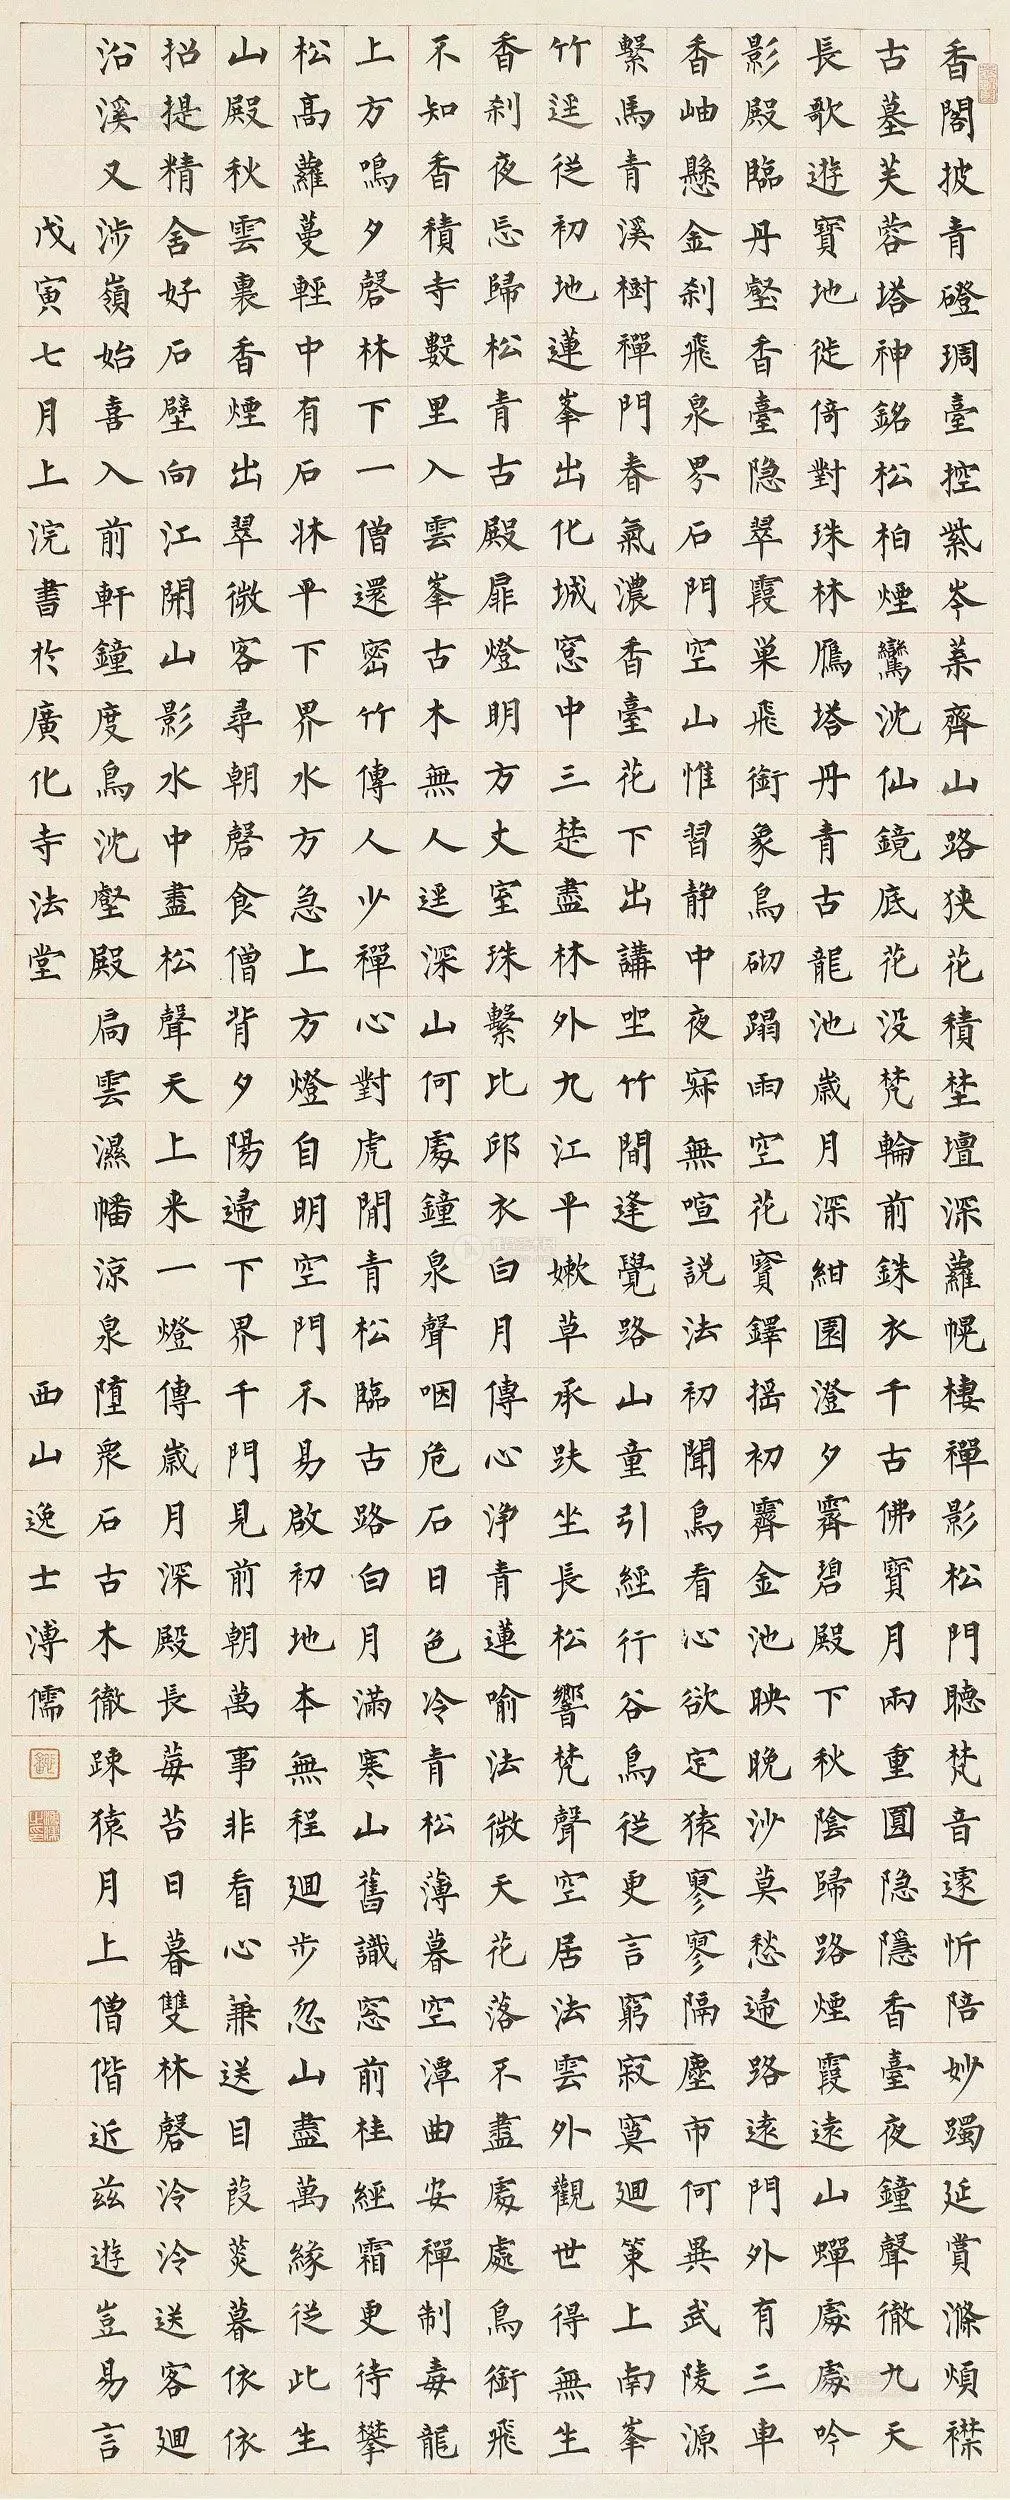 香閣披青磴琱臺控紫岑葇齊山路狹花積埜壇深蘿幌棲禪影松門聽梵音遠忻陪妙躅延賞滌煩襟
古墓芙蓉塔神銘松柏煙鸞沈仙鏡底花没梵輪前銖衣千古佛寶月兩重圓隐隱香臺夜鐘聲徹九天
長歌遊寶地徙倚對珠林鴈塔丹青古龍池歲月深紺園澄夕霽碧殿下秋陰歸路煙霞遠山蟬處處吟
影殿臨丹壑香臺隐翠霞巢飛銜象鳥砌蹋雨空花寶鐸搖初霽金池映晚沙莫愁歸路遠門外有三車
香岫懸金刹飛泉界石門空山惟習静中夜寂無喧説法初聞鳥看心欲定猿寥寥隔塵市何異武陵源
繫馬青溪樹禪門春氣濃香臺花下出講坐竹間逢覺路山童引經行谷鳥從更言窮寂寞廻策上南峯
竹逕從初地蓮峯出化城窓中三楚盡林外九江平嫰草承趺坐長松響梵聲空居法雲外觀世得無生
香刹夜忘歸松青古殿扉燈明方丈室珠繫比邱衣白月傳心浄青蓮喻法微天花落不盡處處鳥銜飛
不知香積寺數里入雲峯古木無人逕深山何處鐘泉聲咽危石日色冷青松薄暮空潭曲安禪制毒龍
上方鳴夕磬林下一僧還密竹傳人少禪心對虎閒青松臨古路白月滿寒山舊識窓前桂經霜更待攀
松高蘿蔓輕中有石牀平下界水方急上方燈自明空門不易啟初地本無程廻步忽山盡萬緣從此生
山殿秋雲裏香煙出翠微客尋朝磬食僧背夕陽歸下界千門見前朝萬事非看心兼送目葭菼暮依依
招提精舍好石壁向江開山影水中盡松聲天上来一燈傳歲月深殿長莓苔日暮雙林磬泠泠送客廻
沿溪又涉嶺始喜入前軒鐘度鳥沈壑殿扃雲濕幡涼泉墮衆石古木徹踈猿月上僧偕近茲遊豈易言
戊寅七月上浣書於廣化寺法堂 西山逸士溥儒